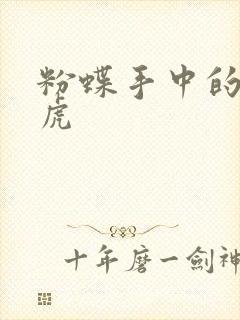 粉蝶手中的
虎
十年磨一劍神